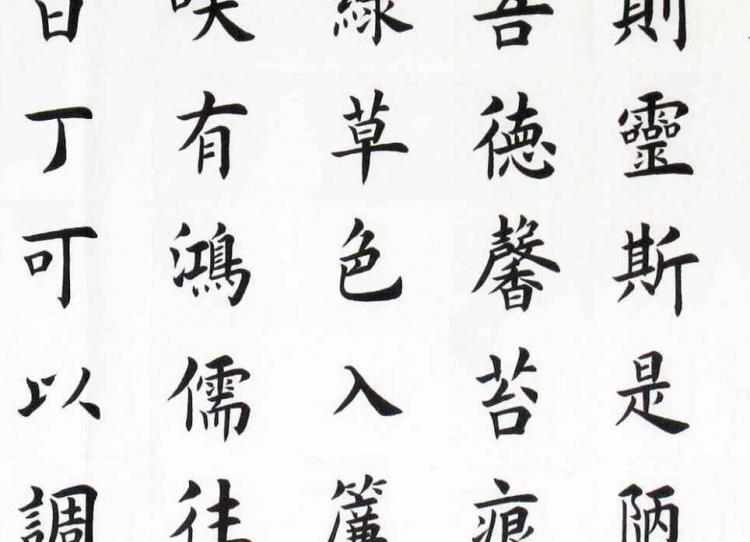 則靈斯是陋
吾德馨苔痕
綠草色入簾
笑有鴻儒往
白丁可以調